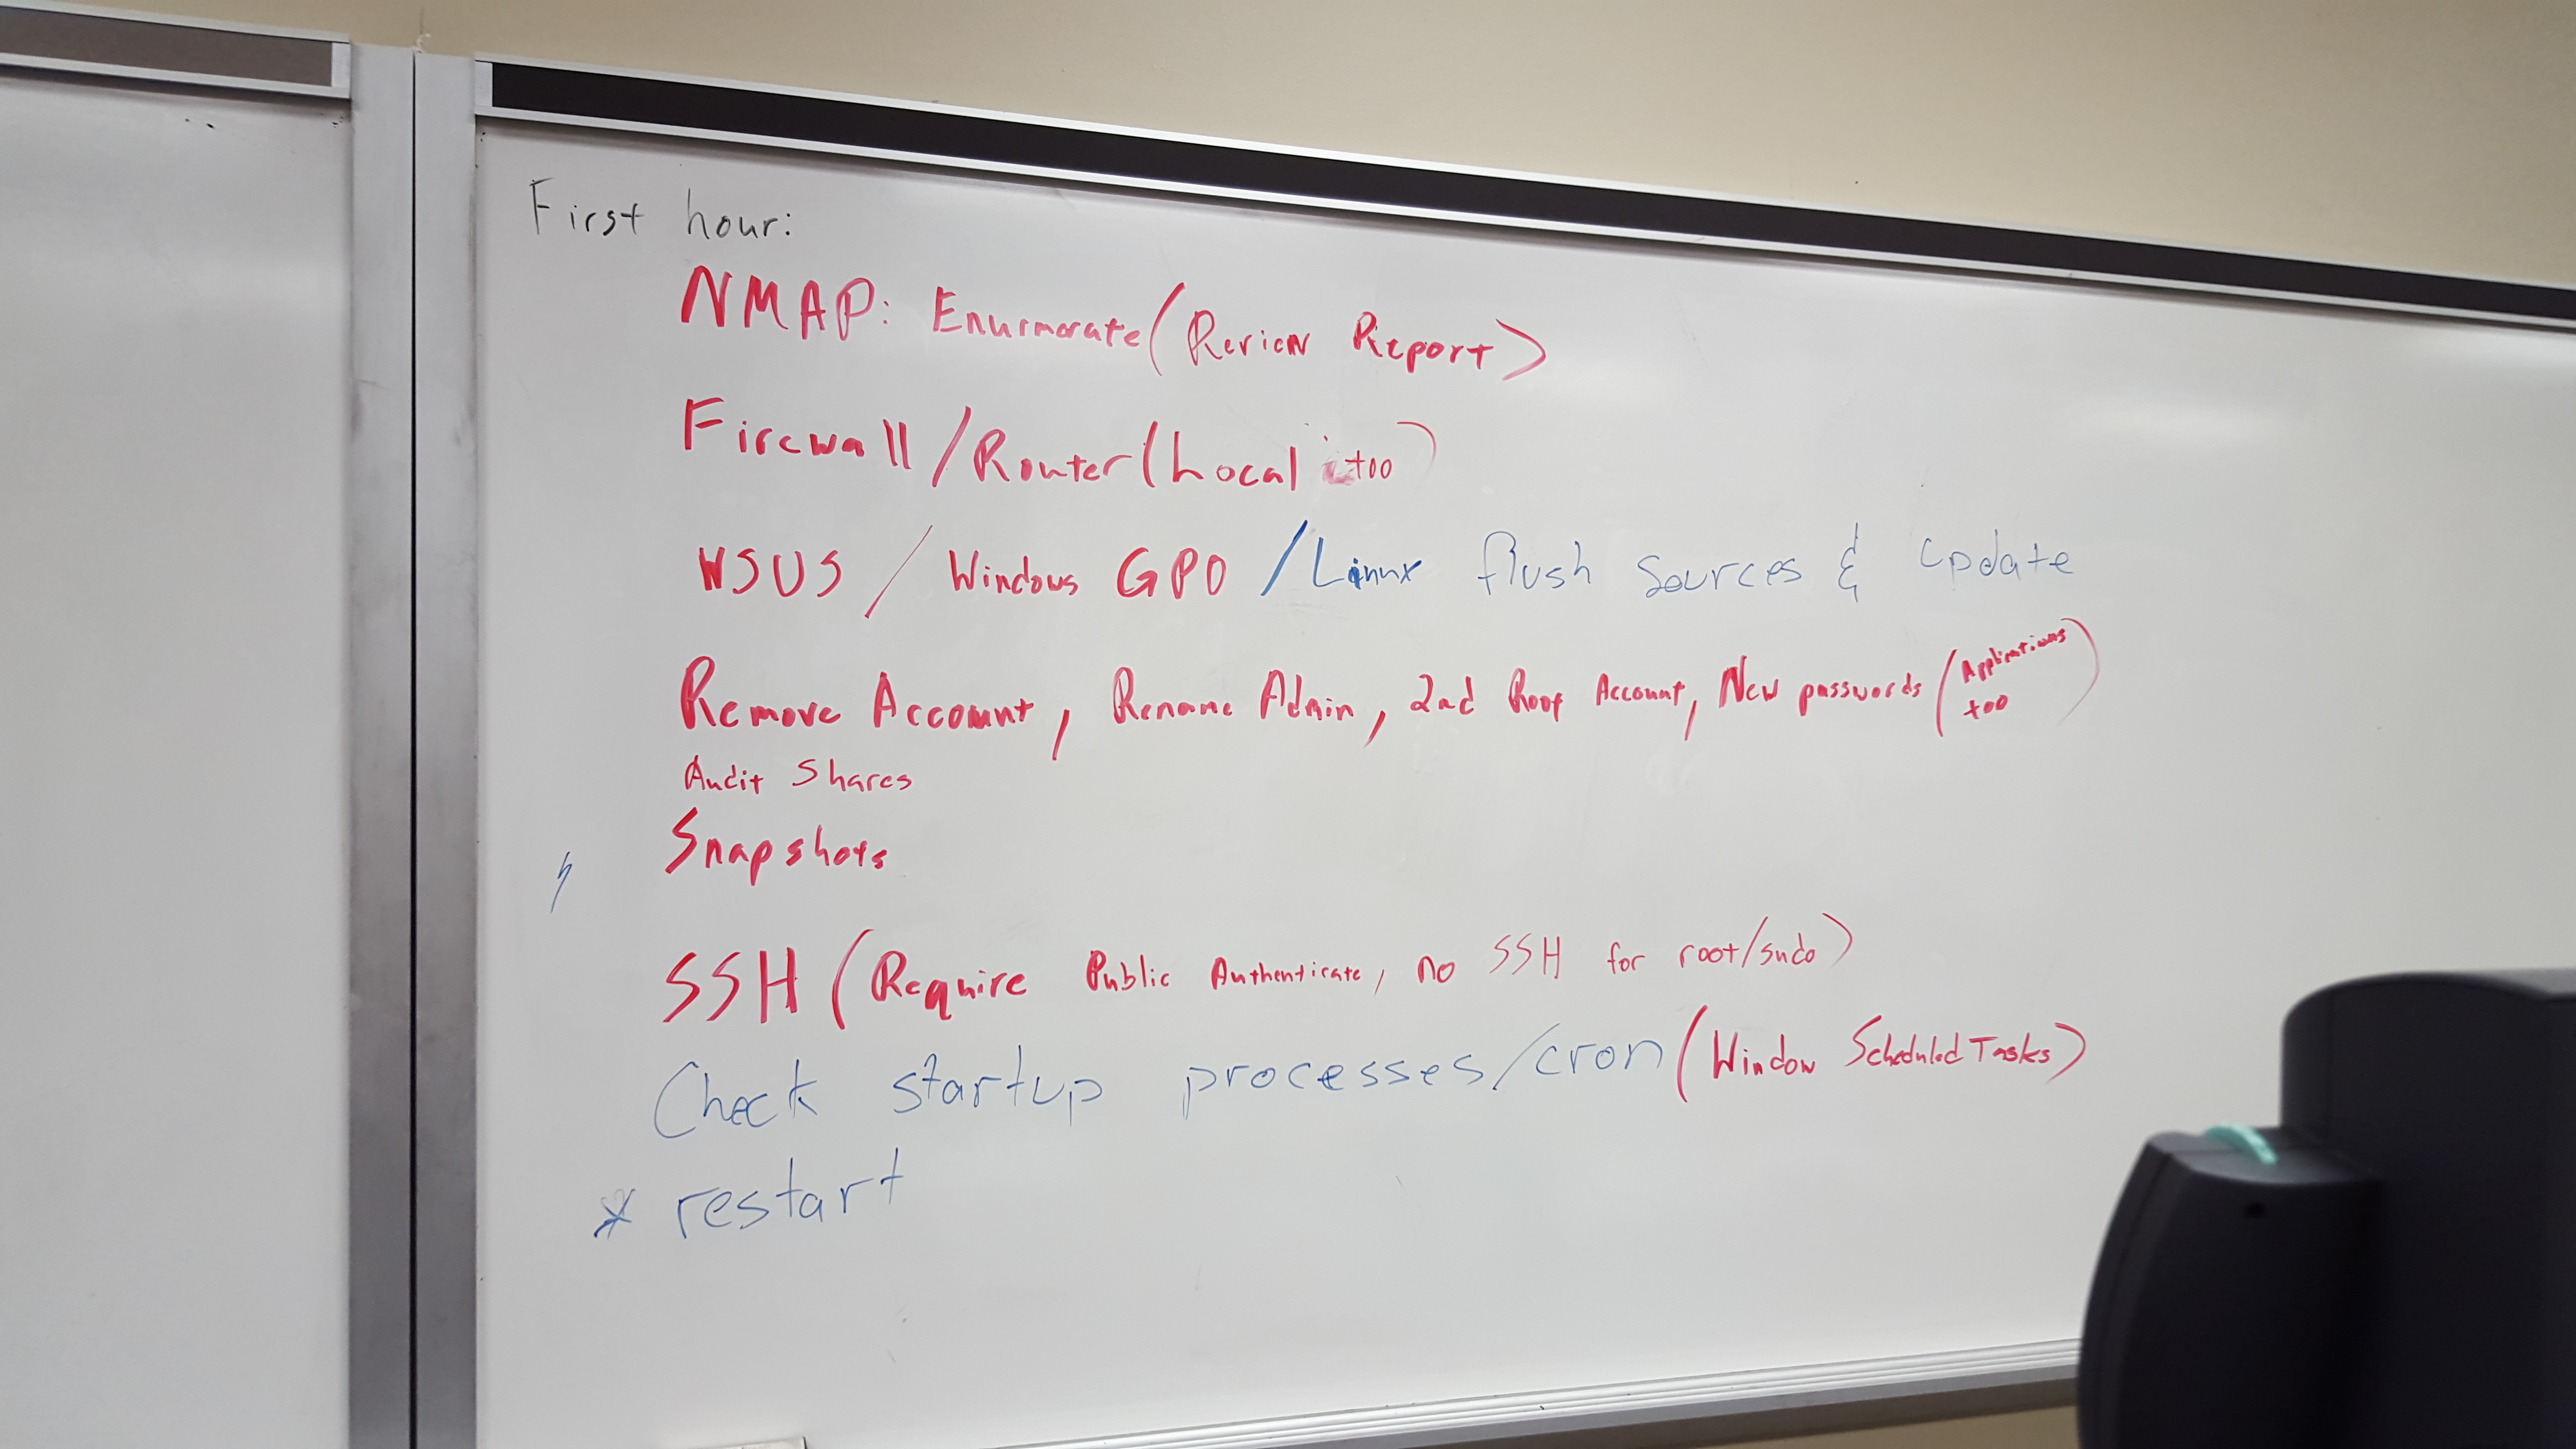 First hour:
NMAP: Enumorate (Review Report)
Firewall/Router (Local too)
WSUS / Windows GPO / Linux flush sources & update
Remove Account, Rename Admin, 2nd Root Account, New passwords (Applications too)
Audit Shares
Snapshots
SSH (Require Public Authenticate, no SSH for root/sudo)
Check startup processes/cron (Window Scheduled Tasks)
* restart